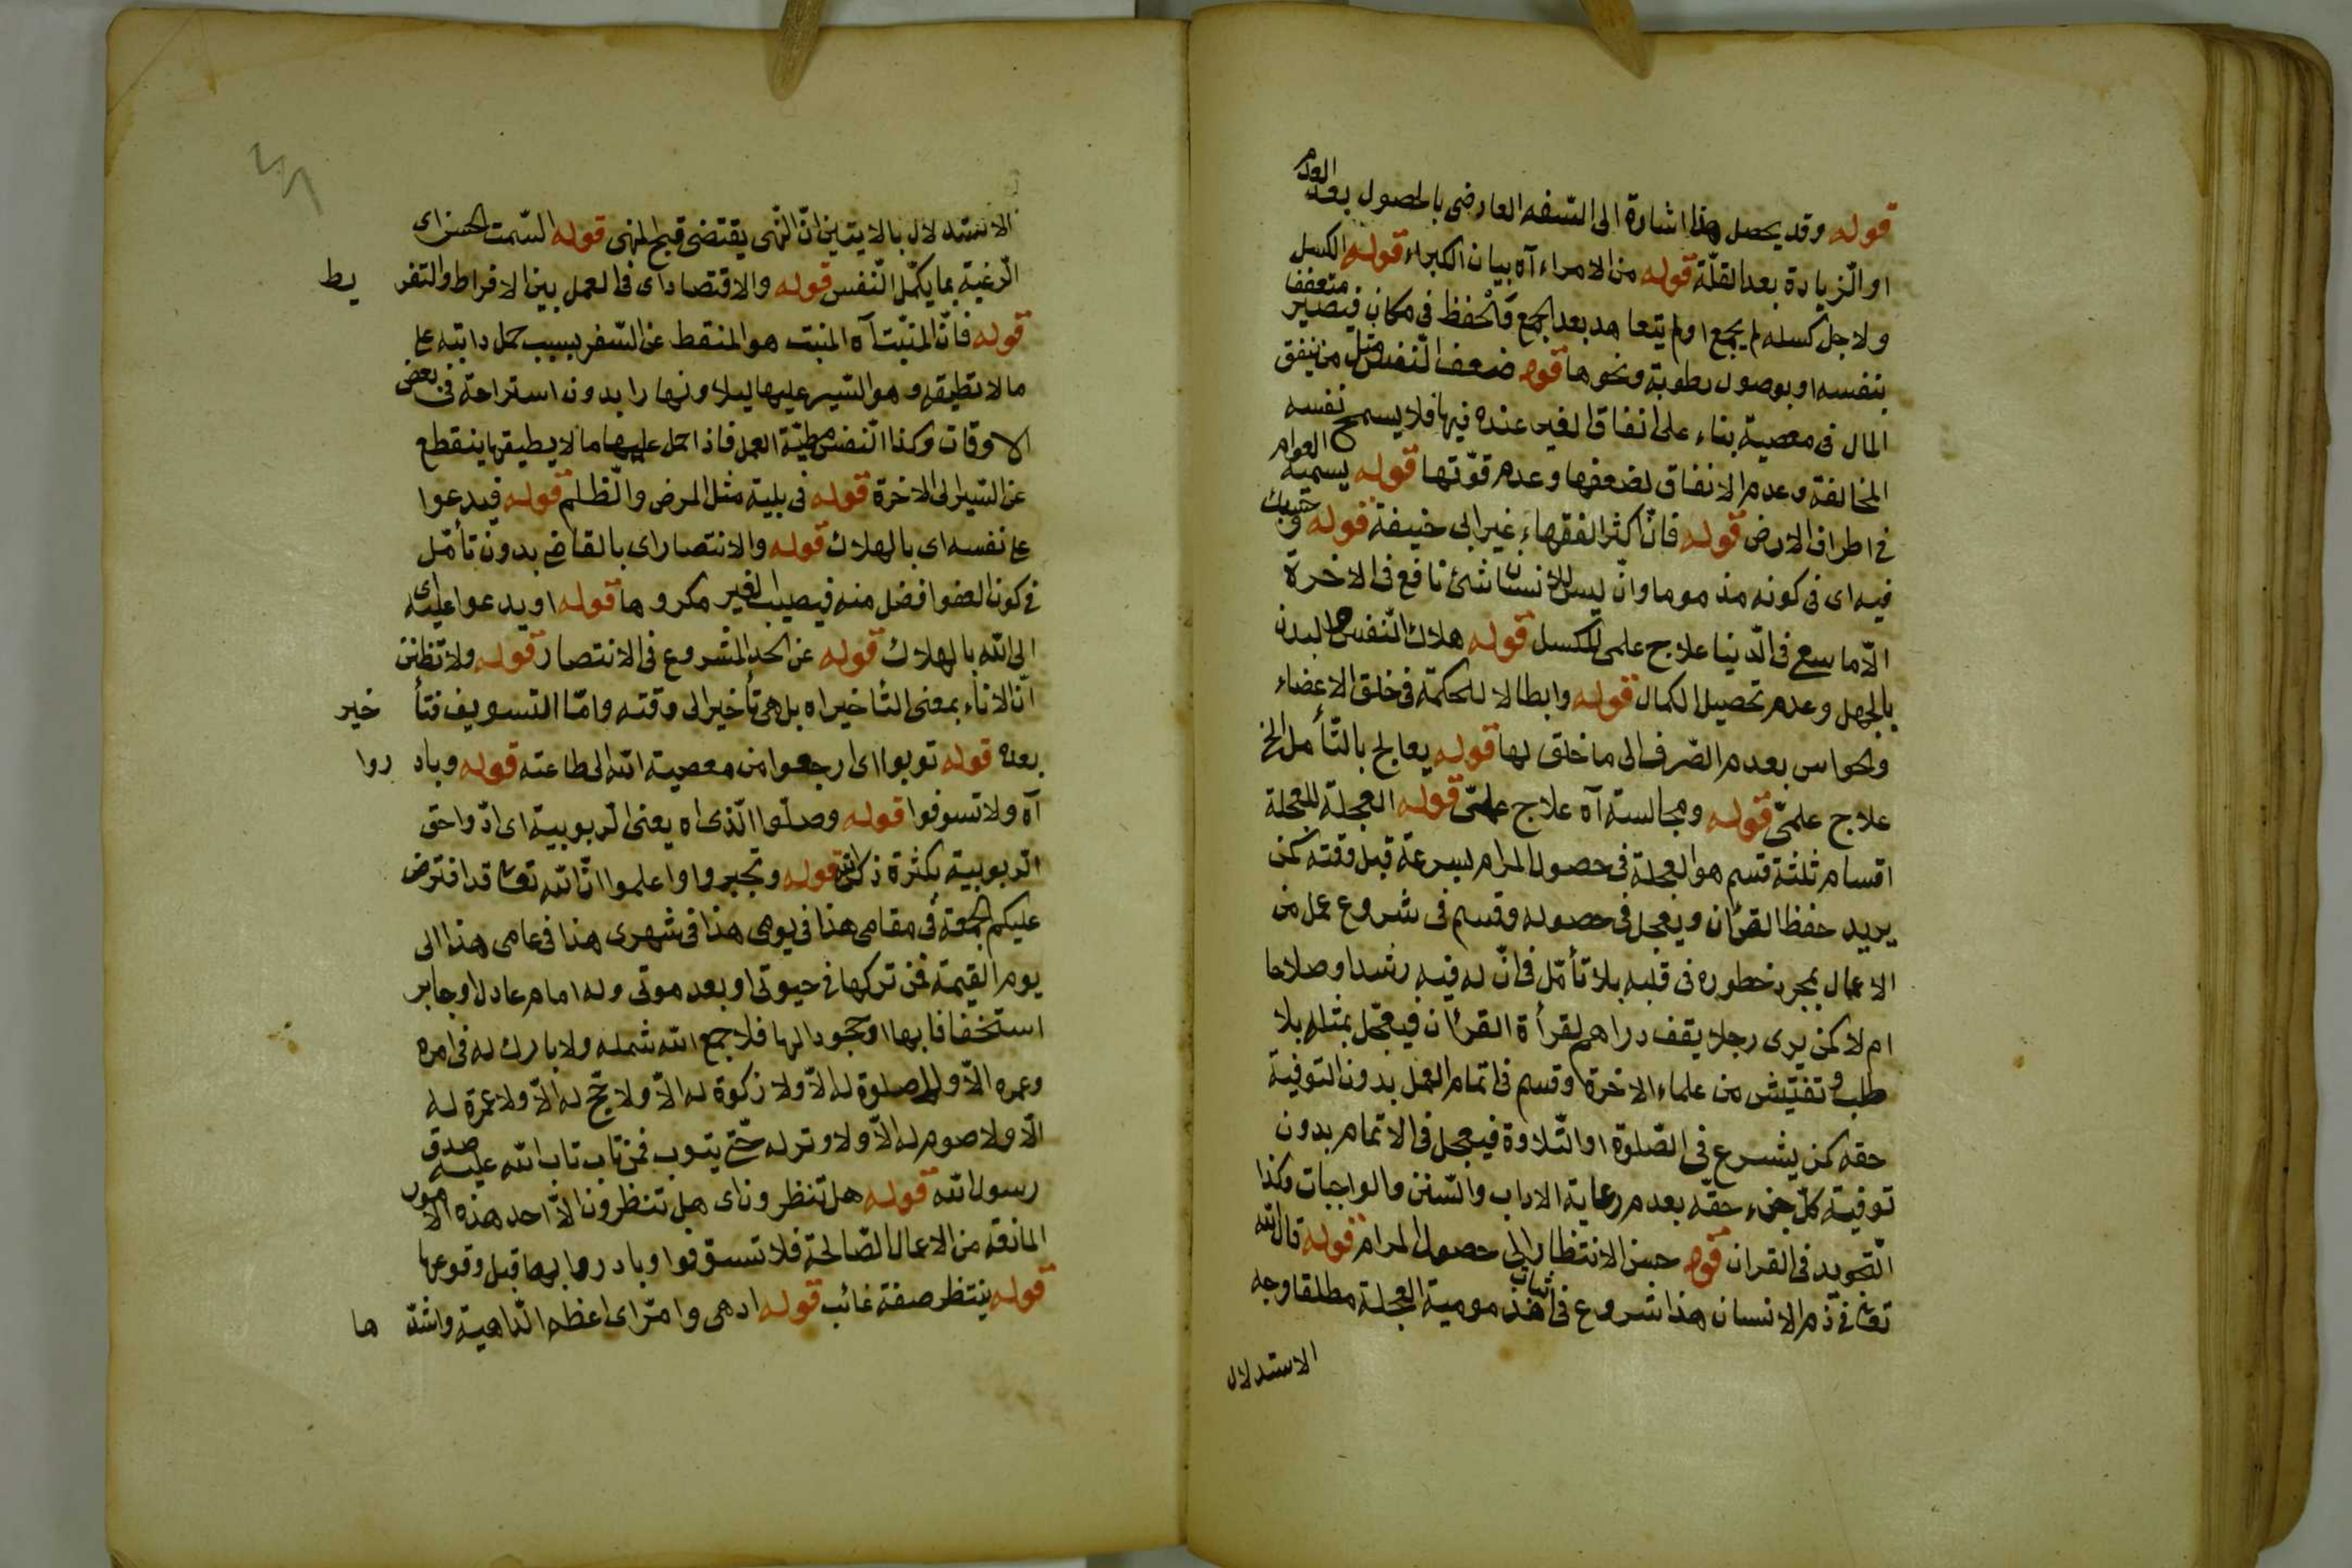 قوله وقد يحصل هذا اشارة الى السّفه العارضى بالحصول بعد العدم
او الزّيادة بعد القلّة قوله من الامراء آه بيان الكبراء قوله الكسل
ولاجل كسله لم يجمع او لم يتعاهد بعد الجمع فى مكان فيصير متعفف
بنفسه او بوصول رطوبة ونحوها قوله ضعف النّفس مثل من ينفق
المال فى معصية بناء على انفاق الغير عنده فيها فلا يسمح نفسه
المخالفة وعدم الانفاق لضعفها وعدم قوّتها قوله يسميه العوام
فى اطراف الارض قوله فانّ اكثر الفقهاء غير ابى حنيفة قوله و
فيه اى فى كونه مذموما وان ليس للانسان شئ نافع فى الاخرة
الّا ما سعى فى الدّنيا علاج علمى للكسل قوله هلاك النّفس البدن
بالجهل وعدم تحصيل الكمال قوله وابطالا للحكمة فى خلق الاعضاء
والحواس بعدم الصّرف الى ما خلق لها قوله يعالج بالتّأمل الخ
علاج علمىّ قوله ومجالسة آه علاج علمىّ قوله العجلة للعجلة
اقسام ثلثة قسم هو العجلة فى حصول المرام بسرعة قبل وقته كمن
يريد حفظ القرآن ويعجل فى حصوله وقسم فى شروع عمل من
الاعمال بمجرد خطوره فى قلبه بلا تأمّل فى انّ له فيه رشدا وصلاحا
ام لا كمن يرى رجلا يقف دراهم لقرأة القرآن فيعجّل بمثله بلا
طلب وتفتيش من علماء الاخرة وقسم فى اتمام العمل بدون التوفية
حقه كمن يشرع فى الصّلوة او التّلاوة فيعجل فى الاتمام بدون
توفية كلّ جزء حقّه بعدم رعاية الاداب والسّنن والواجبات وكذا
التّجويد فى القران قوله حبس الانتظار الى حصول المرام قوله قال الله
تعالى فى ذم الانسان هذا شروع فى اثبات مذمومية العجلة مطلقا وجه
الاستدلال
الاستدلال بالايتين انّ النّهى يقتضى قبح المنهى قوله السّمت الحسن اى
الرّغبة بما يكمّل النّفس قوله والاقتصاد اى فى العمل بين الافراط والتفريط
قوله فانّ المنبّت آه المنبت هو المنقطع عن السّفر بسبب حمل دابته على
ما لا تطيقه وهو السّير عليها ليلا ونهارا بدون استراحة فى بعض
الاوقات وكذا النّفس مطيّة العمل فاذا حمل عليها ما لا يطيقها ينقطع
عن السّير الى الاخرة قوله فى بلية مثل المرض والظّلم قوله فيدعوا
على نفسه اى بالهلاك قوله والانتصار اى بالقاضى بدون تأمّل
فى كون العفو افضل منه فيصيب الغير مكروها قوله او يدعوا عليه اى
الى الله بالهلاك قوله عن الحد المشروع فى الانتصار قوله ولا تظنن
انّ الاناء بمعنى التأخير اه بل هى تأخير الى وقته وامّا التسويف فتأخير
بعده قوله توبوا اى ارجعوا من معصية الله الى طاعته قوله وبادروا
آه ولا تسوفوا قوله وصلّوا الّذى اه يعنى الرّبوبية اى ادّوا حق
الرّبوبية بكثرة ذكر الله قوله وتجبروا واعلموا انّ الله تعالى قد افترض
عليكم الجمعة فى مقامى هذا فى يومى هذا فى شهرى هذا فى عامى هذا الى
يوم القيمة فمن تركها فى حيوتى او بعد موتى وله امام عادل او جابر
استخفافا بها او جحودا لها فلا جمع الله شمله ولا بارك له فى امره
وعمره الّا ولا صلوة له الّا ولا زكوة له الّا ولا حجّ له الّا ولا عمرة له
الّا ولا صوم له الّا ولا وتر له حتّى يتوب فمن تاب تاب الله عليه صدق
رسول الله قوله هل تنظرون اى هل تنتظرون الّا احد هذه الامور
المانعة من الاعمال الصّالحة فلا تسوّفوا وبادروا بها قبل وقوعها
قوله ينتظر صفة غائب قوله ادهى وامرّ اى اعظم الدّاهية واشدّها